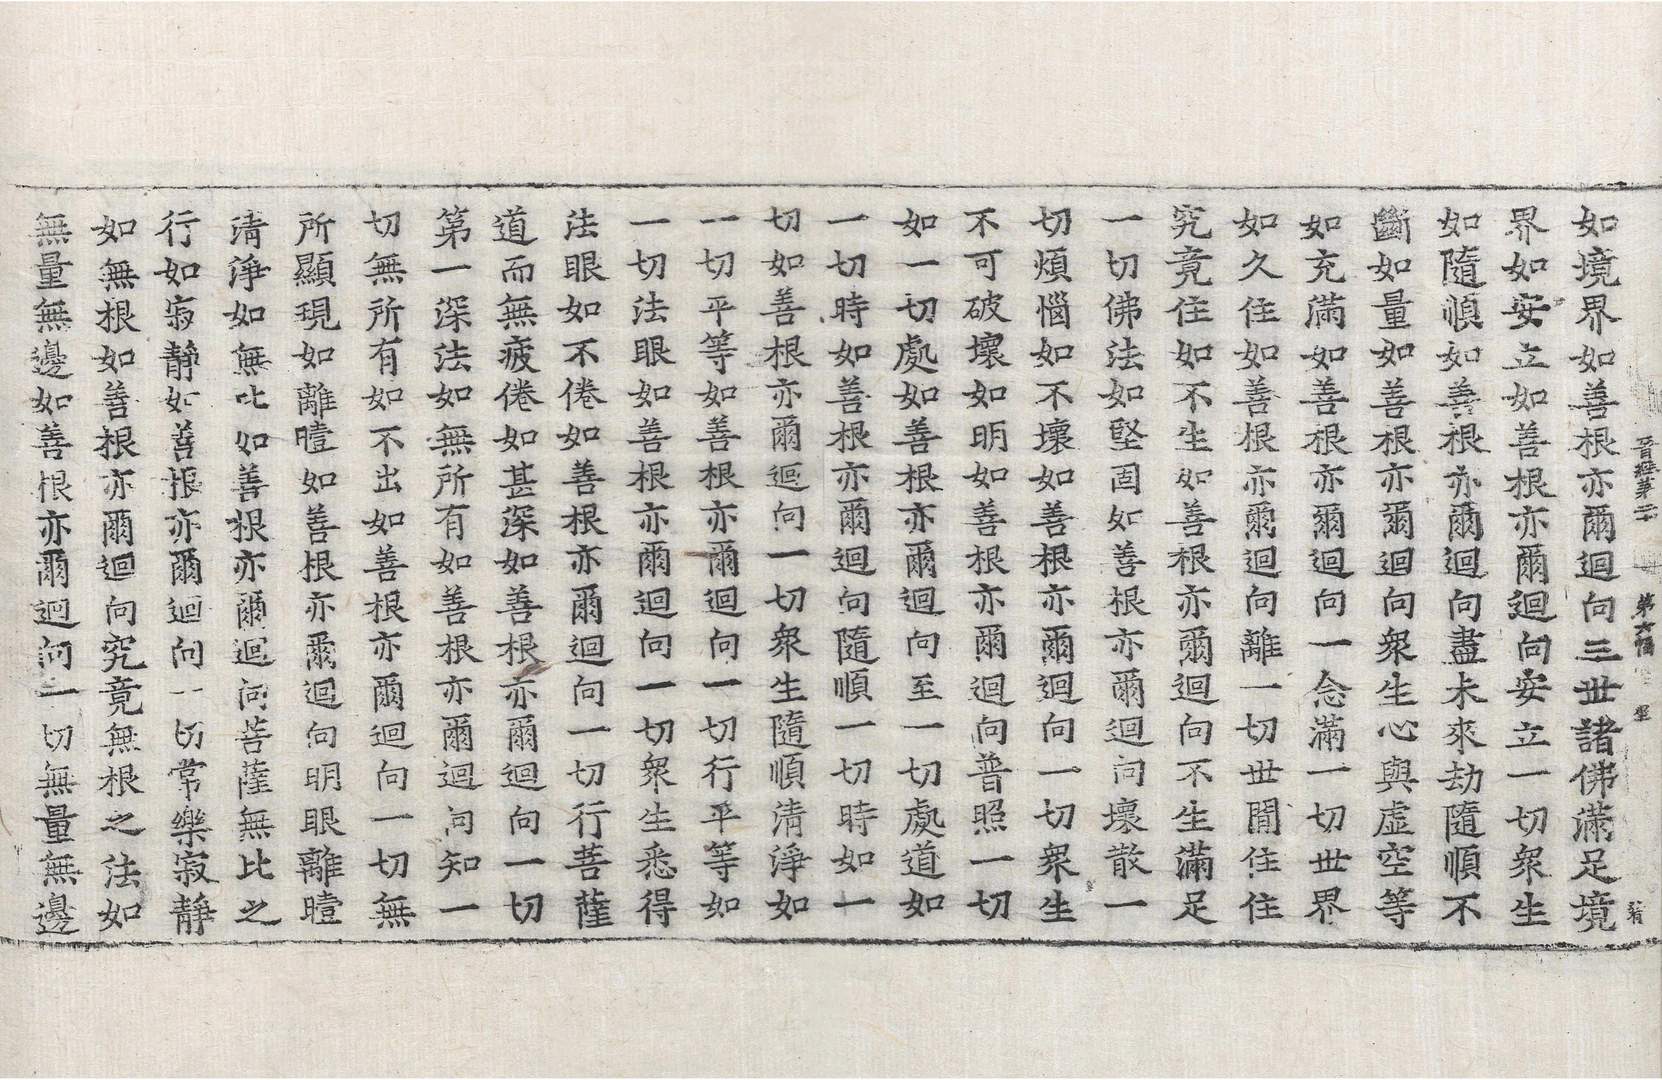 晉經第二十 第六幅
如境界如善根亦爾迴向三世諸佛滿足境
界如安立如善根亦爾迴向安立一切衆生
如隨順如善根亦爾迴向盡未來劫隨順不
斷如量如善根亦爾迴向衆生心與虛空等
如充滿如善根亦爾迴向一念滿一切世界
如久住如善根亦爾迴向離一切世間住住
究竟住如不生如善根亦爾迴向不生滿足
一切佛法如堅固如善根亦爾迴向壞散一
切煩惱如不壞如善根亦爾迴向一切衆生
不可破壞如明如善根亦爾迴向普照一切
如一切處如善根亦爾迴向至一切處道如
一切時如善根亦爾迴向隨順一切時如一
切如善根亦爾迴向一切衆生隨順清淨如
一切平等如善根亦爾迴向一切行平等如
一切法眼如善根亦爾迴向一切衆生悉得
法眼如不倦如善根亦爾迴向一切行菩薩
道而無疲倦如甚深如善根亦爾迴向一切
第一深法如無所有如善根亦爾迴向知一
切無所有如不出如善根亦爾迴向一切無
所顯現如離曀如善根亦爾迴向明眼離曀
清淨如無比如善根亦爾迴向菩薩無比之
行如寂靜如善根亦爾迴向一切常樂寂靜
如無根如善根亦爾迴向究竟無根之法如
無量無邊如善根亦爾迴向一切無量無邊